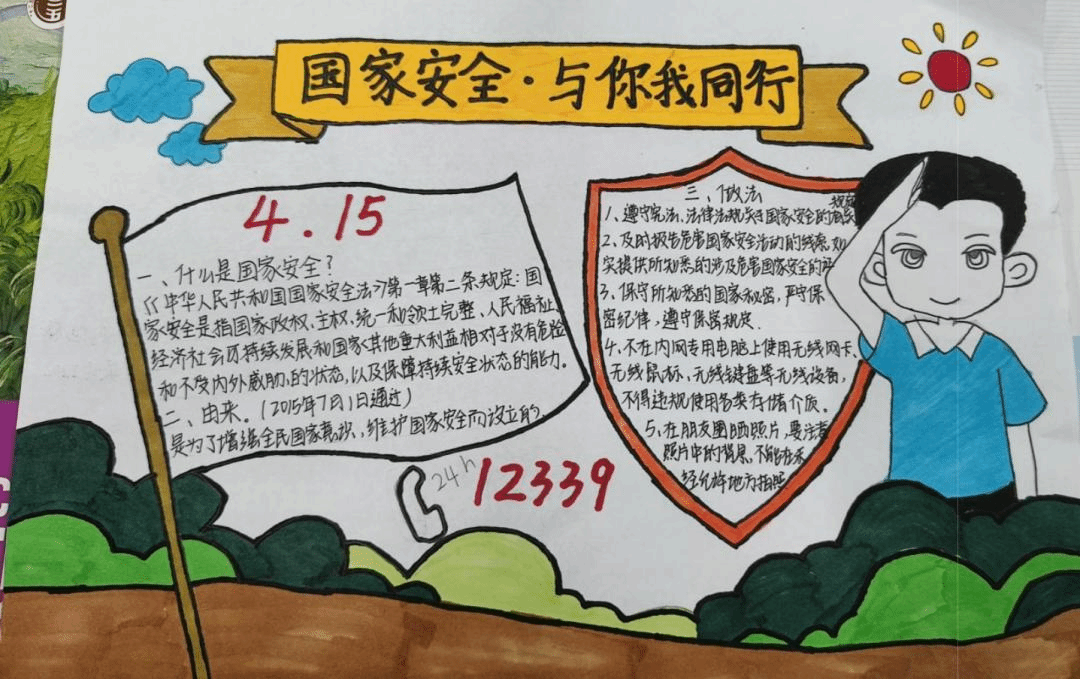 国家安全·与你我同行
4.15
一、什么是国家安全?
《中华人民共和国国家安全法》第一章第二条规定:国
家安全是指国家政权、主权、统一和领土完整、人民福祉、
经济社会可持续发展和国家其他重大利益相对于没有危险
和不受内外威胁,的状态,以及保障持续安全状态的能力。
二、由来。(2015年7月1日通过)
是为了增强全民国家意识,维护国家安全而设立的
24h
12339
三、做法
规定
1、遵守宪法、法律法规关于国家安全的
2、及时报告危害国家安全活动的线索,如
实提供所知悉的涉及危害国家安全的
3、保守所知悉的国家秘密,严守保
密纪律,遵守保密规定.
4、不在内网专用电脑上使用无线网卡、
无线鼠标、无线键盘等无线设备,
不得违规使用各类存储介质。
5、在朋友圈晒照片,要注意
照片中的背景,不能在未
经允许地方拍照